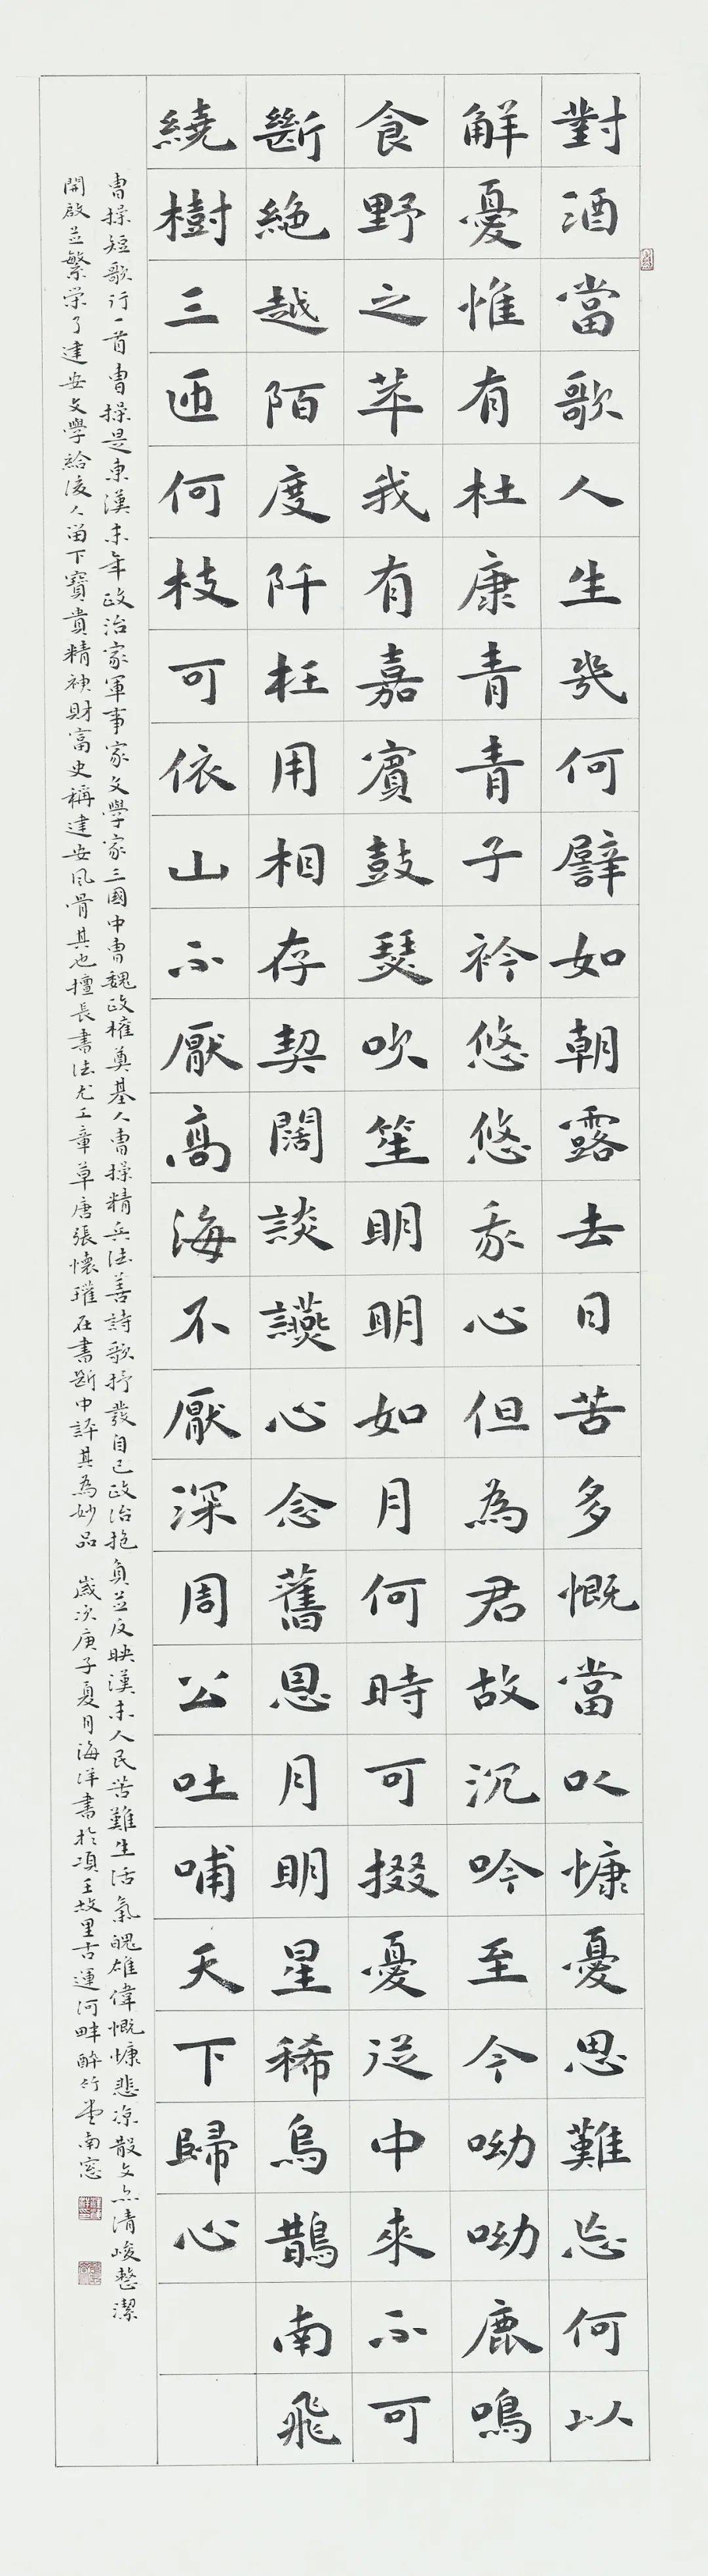 對酒當歌人生幾何譬如朝露去日苦多慨當以慷憂思難忘何以
解憂惟有杜康青青子衿悠悠我心但為君故沉吟至今呦呦鹿鳴
食野之苹我有嘉賓鼓瑟吹笙明明如月何時可掇憂從中來不可
斷絕越陌度阡枉用相存契闊談讌心念舊恩月明星稀烏鵲南飛
繞樹三匝何枝可依山不厭高海不厭深周公吐哺天下歸心
曹操短歌行一首曹操是東漢末年政治家軍事家文學家三國中曹魏政權奠基人曹操精兵法善詩歌抒發自己政治抱負並反映漢末人民苦難生活氣魄雄偉慨慷悲涼散文亦清峻整潔
開啟並繁榮了建安文學給後人留下寶貴精神財富史稱建安風骨其也擅長書法尤工章草唐張懷瓘在書斷中評其為妙品 歲次庚子夏月海洋書於項王故里古運河畔醉竹堂南窗